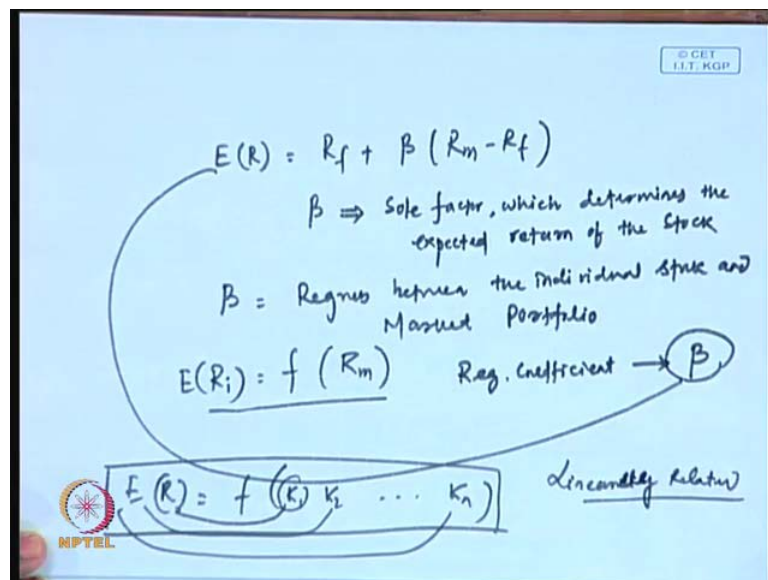 © CET
I.I.T. KGP
E(R) = Rf + β (Rm - Rf)
β ⇒ Sole factor, which determines the
expected return of the Stock
β = Regress between the individual stock and
Market Portfolio
E(Ri) = f (Rm) Reg. Coefficient → β
E (R) = f (K1 K2 ... Kn) Related
NPTEL